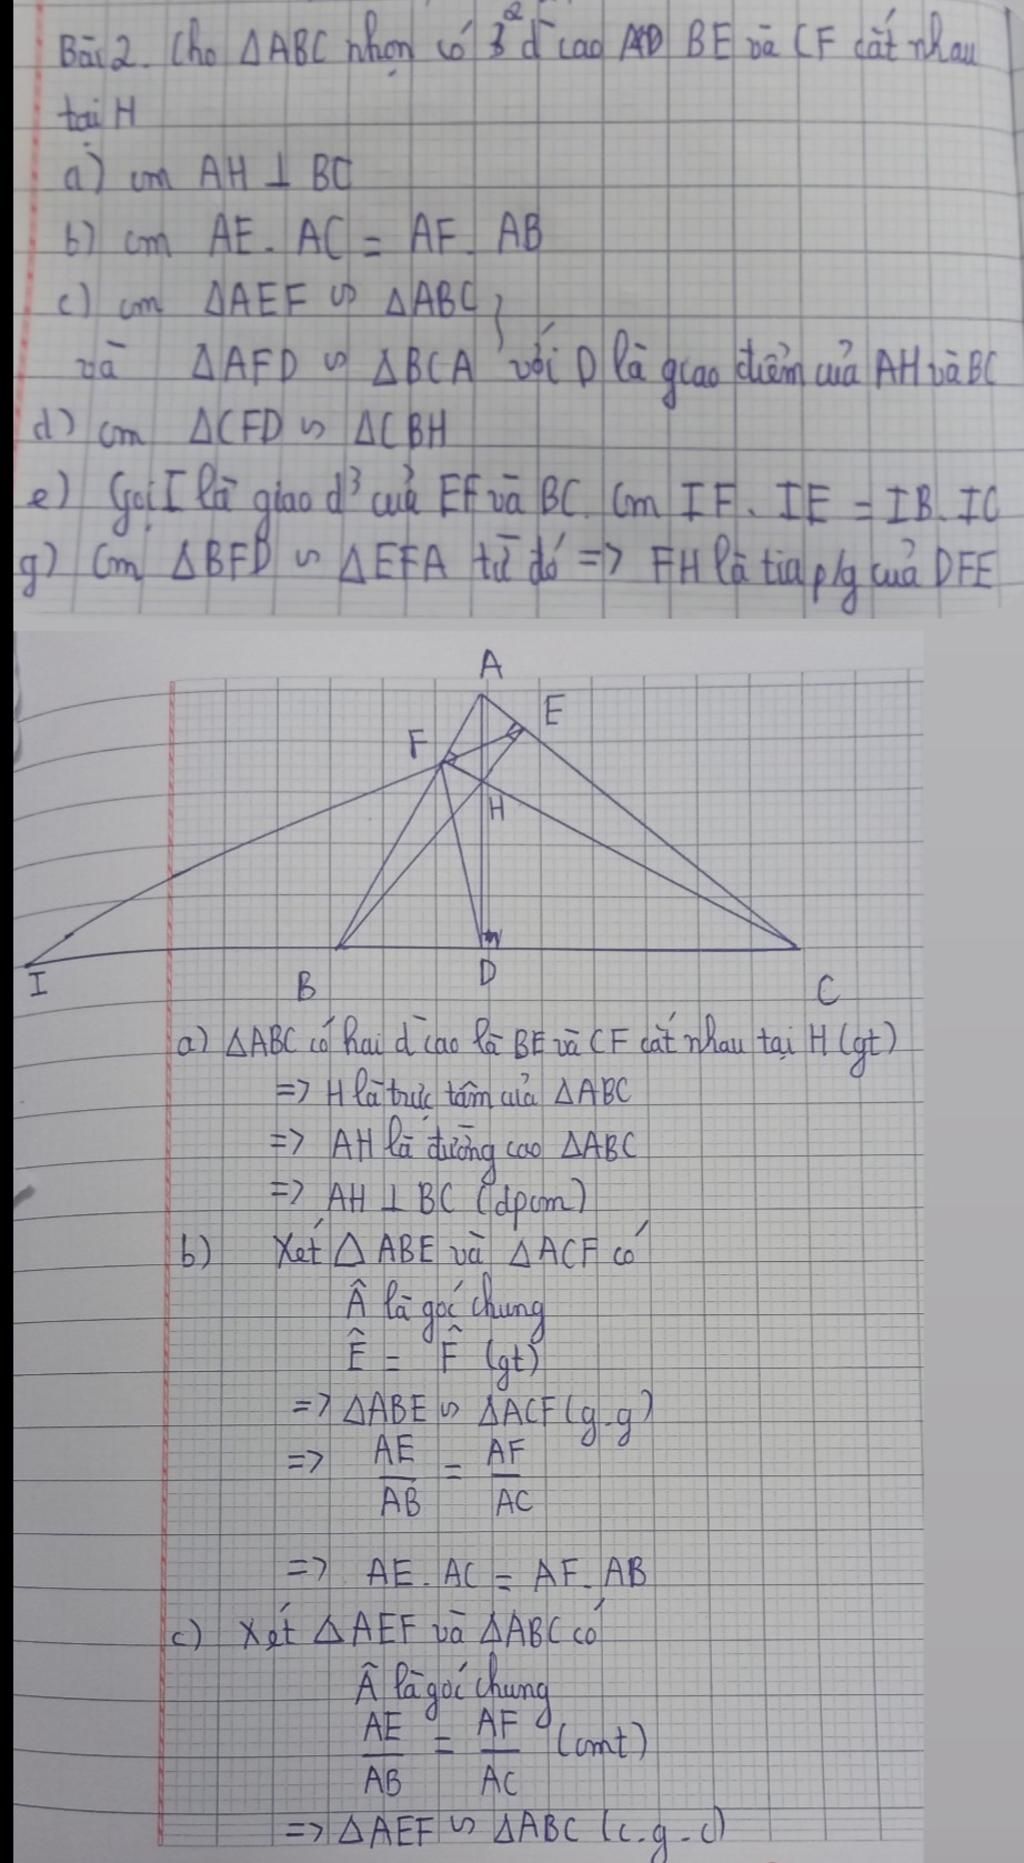 Bài 2. Cho ΔABC nhọn có 2 đ cao BE và CF cắt nhau
tại H
a) cm AH ⊥ BC
b) cm AE. AC = AF. AB
c) cm ΔAEF ∽ ΔABC
và ΔAFD ∽ ΔBCA với D là giao điểm của AH và BC
d) cm ΔCFD ∽ ΔCBH
e) Gọi I là giao đ³ của EF và BC. Cm IF. IE = IB. IC
g) Cm ΔBFD ∽ ΔEFA từ đó => FH là tia p/g của DFE
A
E
F
H
I
B
D
C
a) ΔABC có hai đ cao là BE và CF cắt nhau tại H (gt)
=> H là trực tâm của ΔABC
=> AH là đường cao ΔABC
=> AH ⊥ BC (dpcm)
b) Xét Δ ABE và ΔACF có
Â là góc chung
Ê = F̂ (gt)
=> ΔABE ∽ ΔACF (g-g)
=> AE/AB = AF/AC
=> AE. AC = AF. AB
c) Xét ΔAEF và ΔABC có
Â là góc chung
AE/AB = AF/AC (cmt)
=> ΔAEF ∽ ΔABC (c.g-c)